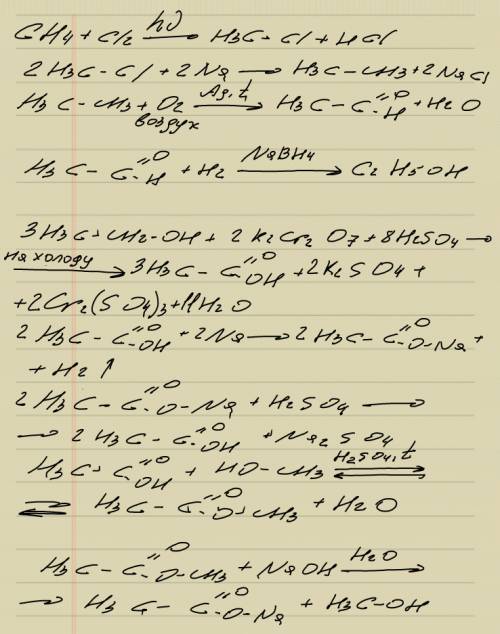 CH4 + Cl2 —hν→ H3C-Cl + HCl
2H3C-Cl + 2Na → H3C-CH3 + 2NaCl
H3C-CH3 + O2 —Ag, t→ H3C-C(=O)-H + H2O
воздух
H3C-C(=O)-H + H2 —NaBH4→ C2H5OH
3H3C-CH2-OH + 2K2Cr2O7 + 8H2SO4 →
на холоду → 3H3C-C(=O)-OH + 2K2SO4 +
+2Cr2(SO4)3 + 11H2O
2H3C-C(=O)-OH + 2Na → 2H3C-C(=O)-O-Na +
+ H2↑
2H3C-C(=O)-O-Na + H2SO4 →
→ 2H3C-C(=O)-OH + Na2SO4
H3C-C(=O)-OH + HO-CH3 ⇌ H2SO4, t
⇌ H3C-C(=O)-O-CH3 + H2O
H3C-C(=O)-O-CH3 + NaOH —H2O→
→ H3C-C(=O)-O-Na + H3C-OH